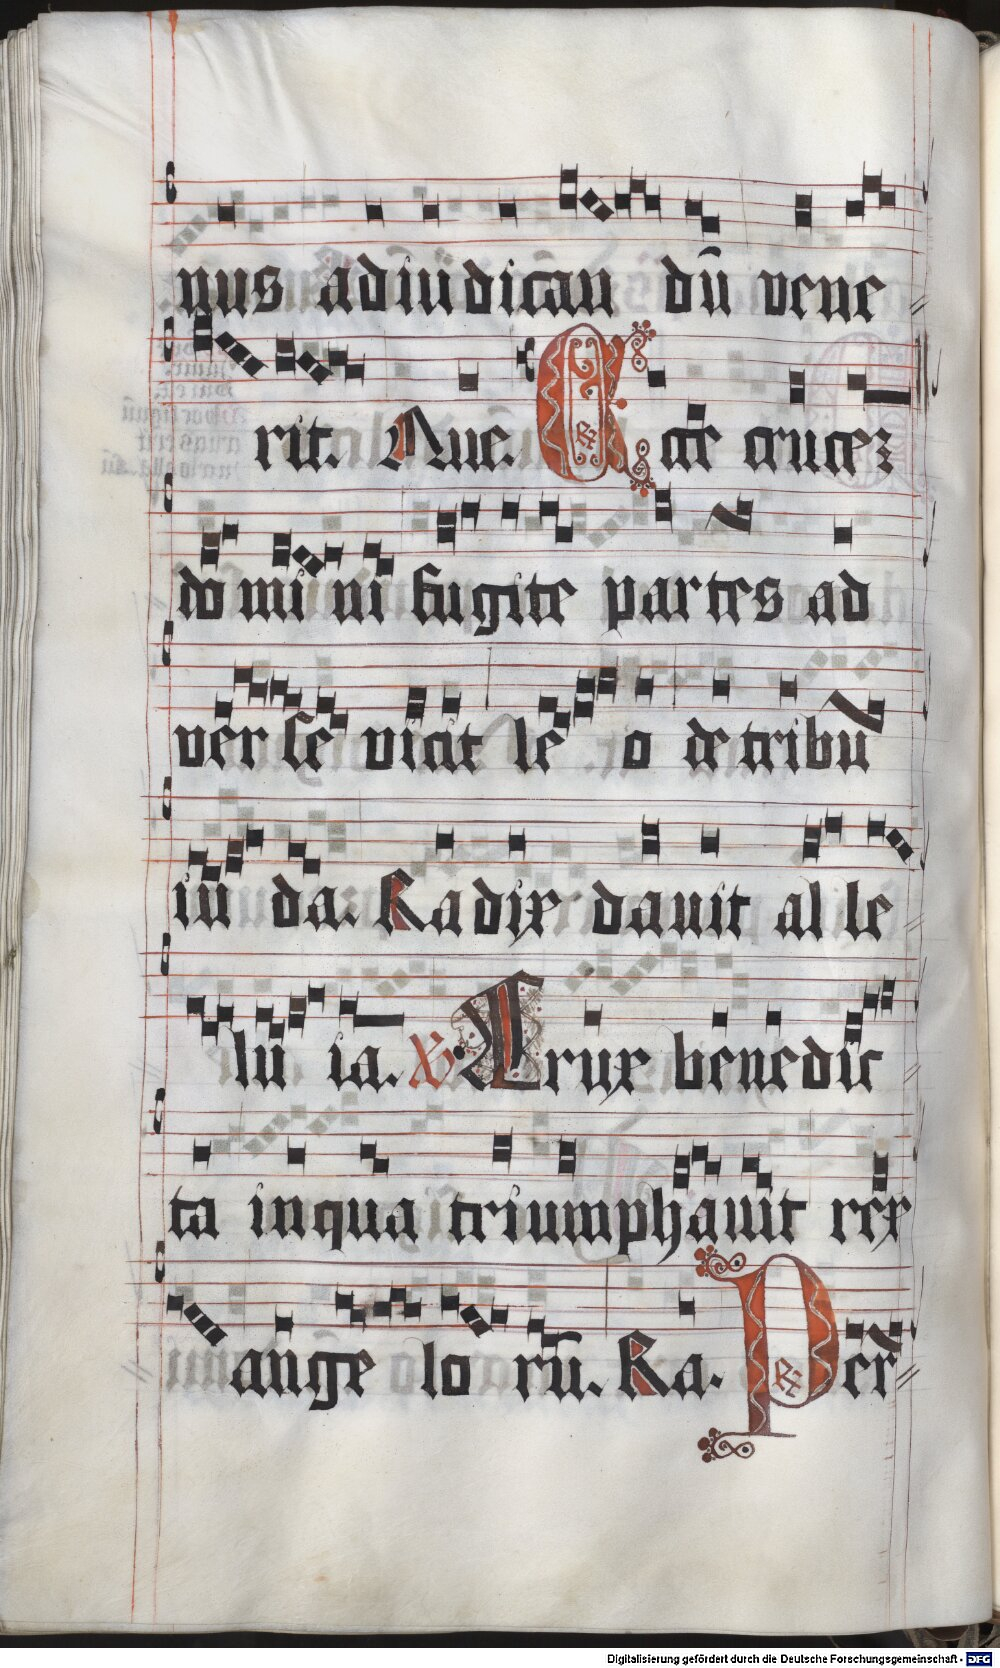 nus ad iudican dū vene
rit. Aue. Ecce crucez
domini ni fugite partes ad
ver se vicit le o de tribu
iu da. Radix dauit al le
lu ia. V Crux benedic
ta in qua triumphauit rex
ange lo rū. Ra. Per
Digitalisierung gefördert durch die Deutsche Forschungsgemeinschaft - DFG